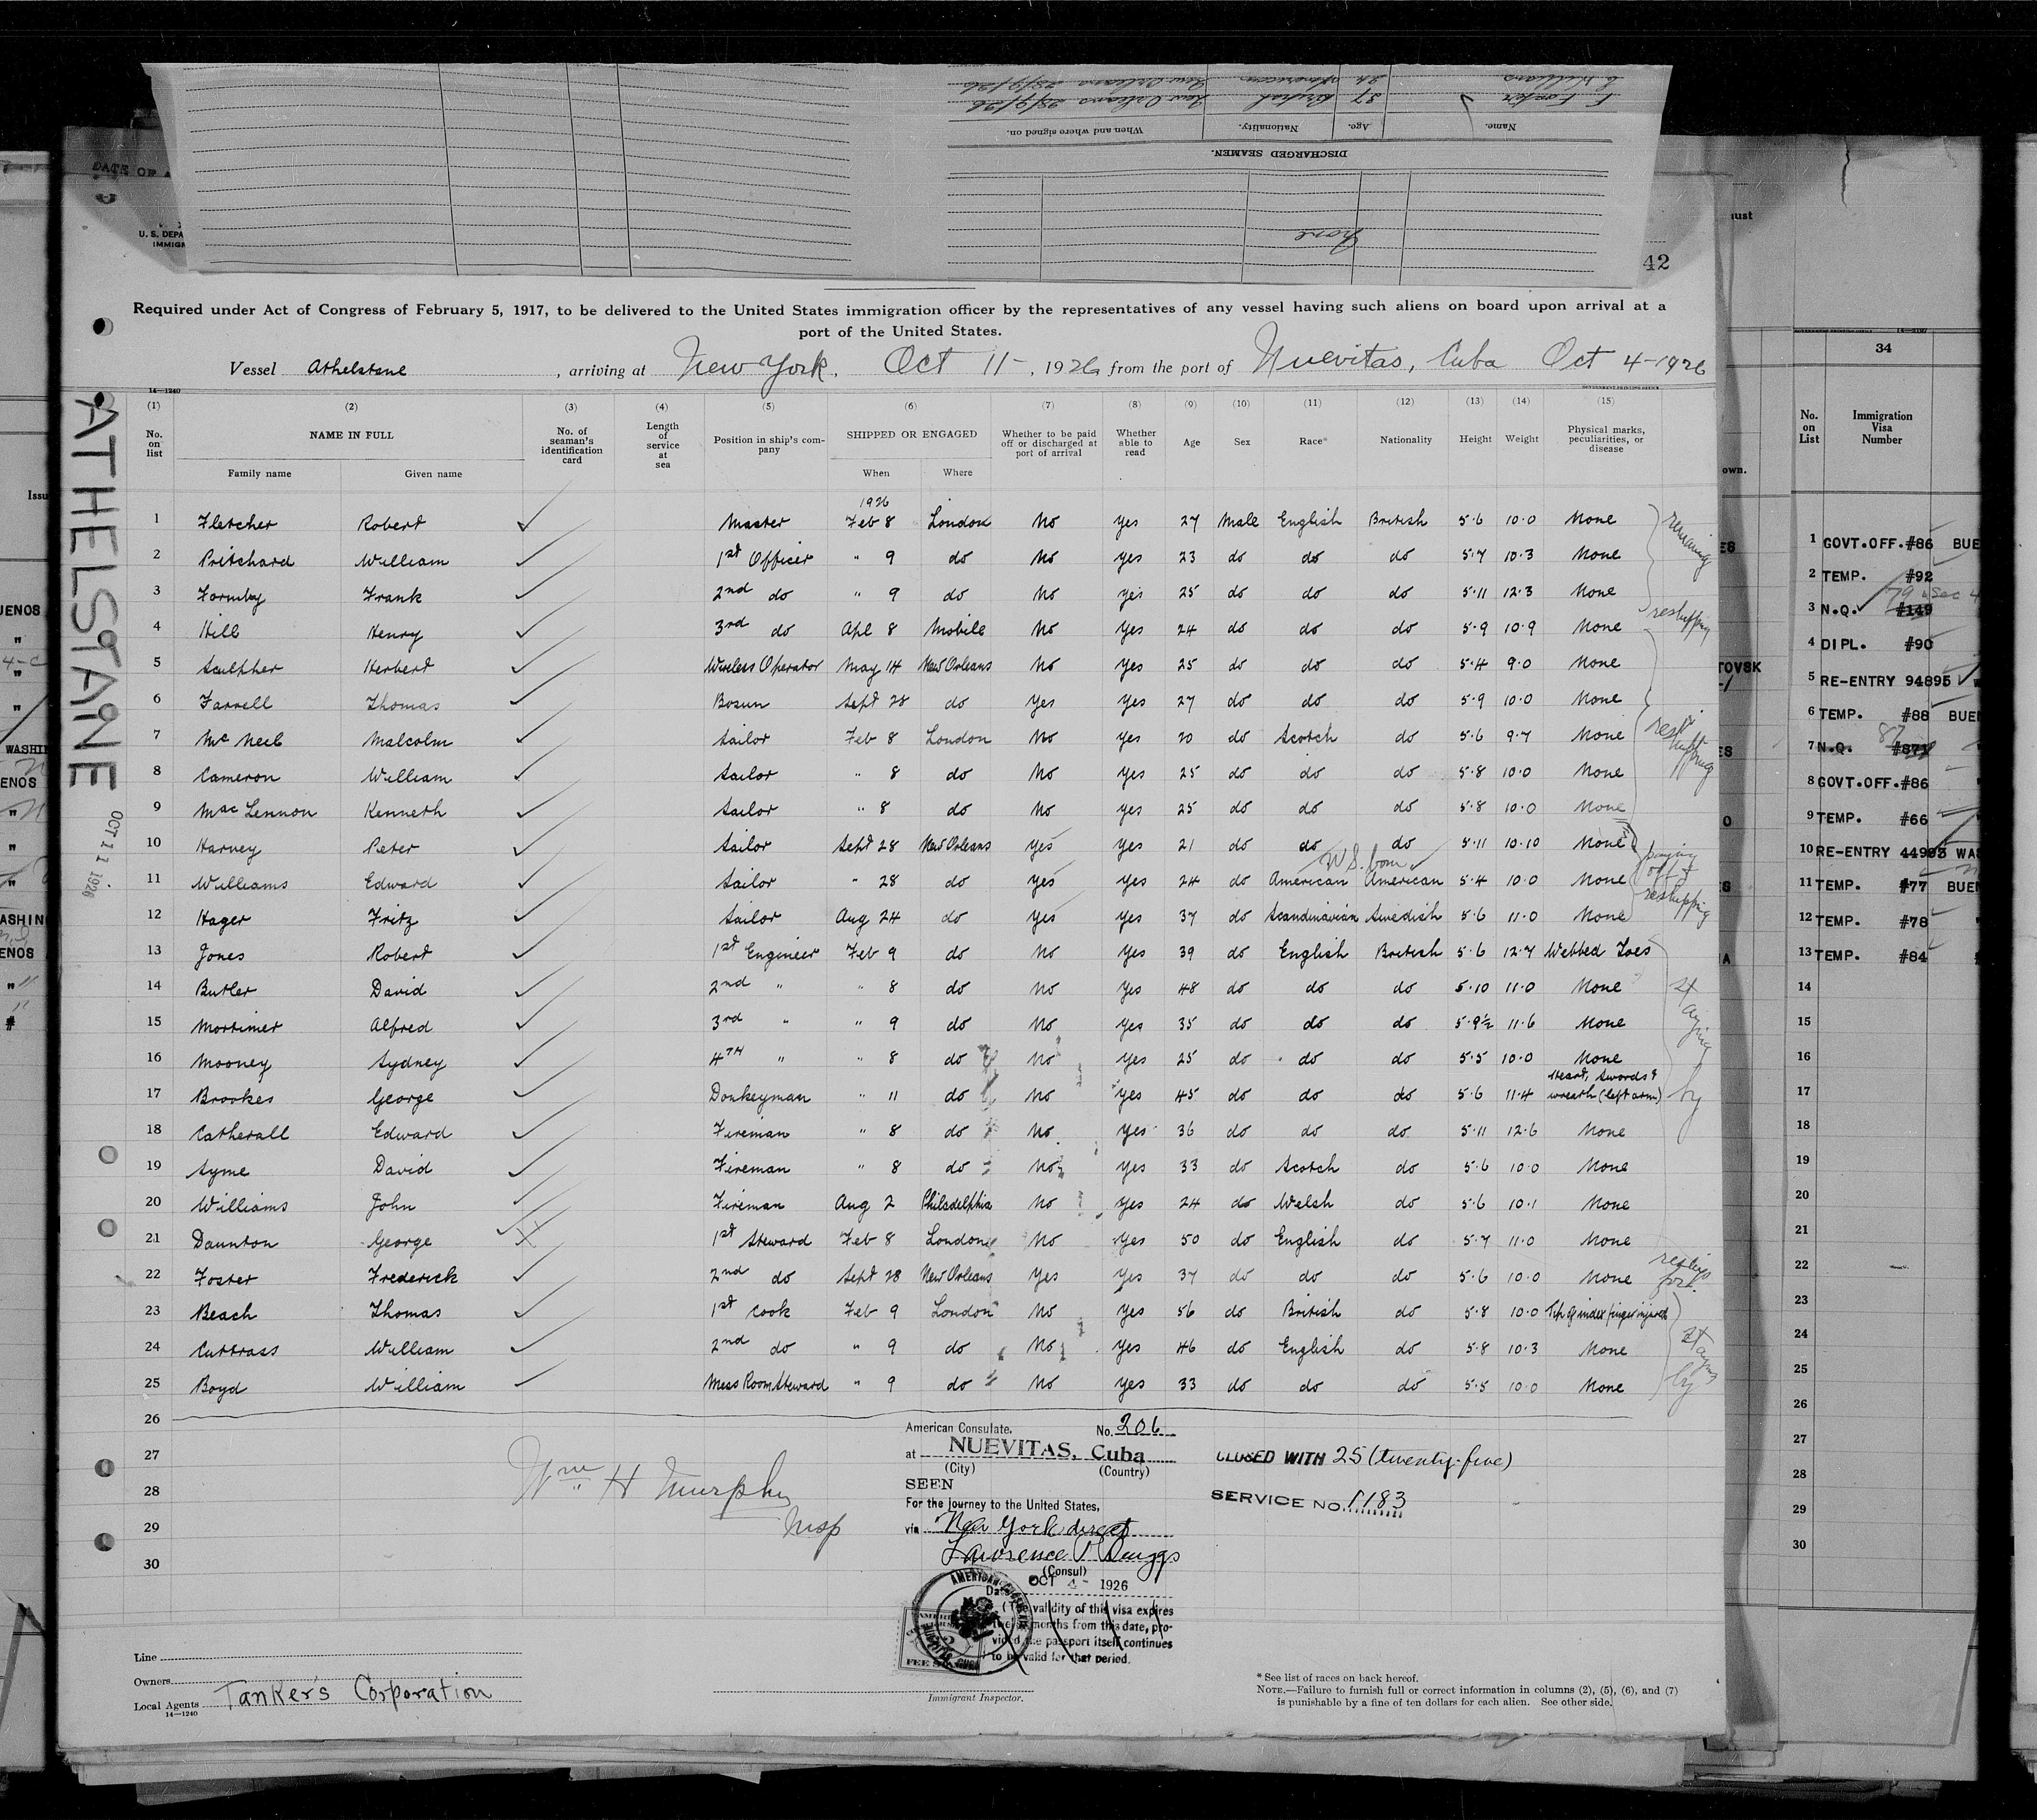 DISCHARGED SEAMEN.
Name. Age. Nationality. When and where signed on.
F. Foster 37 British New Orleans 28/9/26
E Williams 24 American New Orleans 28/9/26
None
DATE OF A
U. S. DEPA
IMMIGR
42
Required under Act of Congress of February 5, 1917, to be delivered to the United States immigration officer by the representatives of any vessel having such aliens on board upon arrival at a
port of the United States.
Vessel Athelstane, arriving at New York, Oct 11-, 1926, from the port of Nuevitas, Cuba Oct 4-1926
14—1240
GOVERNMENT PRINTING OFFICE
ATHELSTANE
OCT 11 1926
(1) (2) (3) (4) (5) (6) (7) (8) (9) (10) (11) (12) (13) (14) (15)
No. on list NAME IN FULL No. of seaman's identification card Length of service at sea Position in ship's company SHIPPED OR ENGAGED Whether to be paid off or discharged at port of arrival Whether able to read Age Sex Race* Nationality Height Weight Physical marks, peculiarities, or disease
Family name Given name When Where
1926
1 Fletcher Robert Master Feb 8 London No yes 27 Male English British 5·6 10·0 None
2 Pritchard William 1st Officer " 9 do No yes 23 do do do 5·7 10·3 None
remaining
3 Formby Frank 2nd do " 9 do No yes 25 do do do 5·11 12·3 None
4 Hill Henry 3rd do Apl 8 Mobile No yes 24 do do do 5·9 10·9 None
reshipping
5 Sculpher Herbert Wireless Operator May 14 New Orleans No yes 25 do do do 5·4 9·0 None
6 Farrell Thomas Bosun Sept 28 do Yes yes 27 do do do 5·9 10·0 None
7 McNeil Malcolm Sailor Feb 8 London No yes 20 do Scotch do 5·6 9·7 None
8 Cameron William Sailor " 8 do No yes 25 do do do 5·8 10·0 None
9 MacLennon Kenneth Sailor " 8 do No yes 25 do do do 5·8 10·0 None
10 Harvey Peter Sailor Sept 28 New Orleans Yes yes 21 do do do 5·11 10·10 None
U.S. born
paying off & reshipping
11 Williams Edward Sailor " 28 do Yes yes 24 do American American 5·4 10·0 None
12 Hager Fritz Sailor Aug 24 do Yes yes 37 do Scandinavian Swedish 5·6 11·0 None
13 Jones Robert 1st Engineer Feb 9 do No yes 39 do English British 5·6 12·7 Webbed Toes
14 Butler David 2nd " " 8 do No yes 48 do do do 5·10 11·0 None
15 Mortimer Alfred 3rd " " 9 do No yes 35 do do do 5·9½ 11·6 None
staying by
16 Mooney Sydney 4TH " " 8 do No yes 25 do do do 5·5 10·0 None
17 Brookes George Donkeyman " 11 do No yes 45 do do do 5·6 11·4 Heart, Swords & wreath (left arm)
18 Catherall Edward Fireman " 8 do No yes 36 do do do 5·11 12·6 None
19 Syme David Fireman " 8 do No yes 33 do Scotch do 5·6 10·0 None
20 Williams John Fireman Aug 2 Philadelphia No yes 24 do Welsh do 5·6 10·1 None
21 Daunton George 1st Steward Feb 8 London No yes 50 do English do 5·7 11·0 None
22 Foster Frederick 2nd do Sept 28 New Orleans Yes yes 37 do do do 5·6 10·0 None
23 Beach Thomas 1st Cook Feb 9 London No yes 56 do British do 5·8 10·0 Tip of index finger injured
24 Cuttrass William 2nd do " 9 do No yes 46 do English do 5·8 10·3 None
staying by
25 Boyd William Mess Room Steward " 9 do No yes 33 do do do 5·5 10·0 None
26
27
28
29
30
Wm H Murphy
Insp
American Consulate, No. 206
at NUEVITAS, Cuba
(City) (Country)
SEEN
For the journey to the United States,
via New York direct
Lawrence P Briggs
(Consul)
Date OCT 4- 1926
(The validity of this visa expires
twelve months from this date, pro-
vided the passport itself continues
to be valid for that period.
FEE STAMP
CLOSED WITH 25 (twenty-five)
SERVICE NO. 1183
Line
Owners
Local Agents Tanker's Corporation
14—1240
Immigrant Inspector.
* See list of races on back hereof.
NOTE.—Failure to furnish full or correct information in columns (2), (5), (6), and (7)
is punishable by a fine of ten dollars for each alien. See other side.
34
No. on List Immigration Visa Number
1 GOVT.OFF.#86 BUE
2 TEMP. #92
3 N.Q. #149
4 DIPL. #90
5 RE-ENTRY 94895
6 TEMP. #88 BUE
7 N.Q. 87
8 GOVT.OFF.#86
9 TEMP. #66
10 RE-ENTRY 44903 WA
11 TEMP. #77 BUE
12 TEMP. #78
13 TEMP. #84
14
15
16
17
18
19
20
21
22
23
24
25
26
27
28
29
30